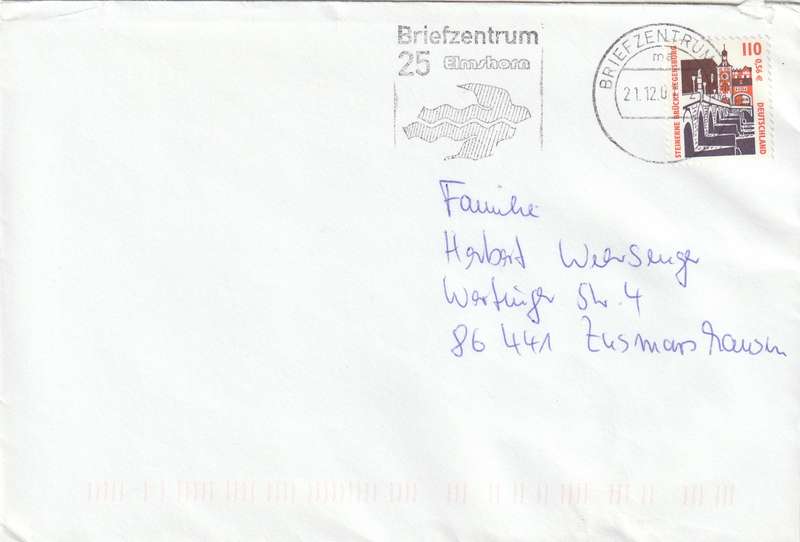 Briefzentrum
25 Elmshorn
BRIEFZENTRUM
ma
21.12.0
110
0,56 €
DEUTSCHLAND
STEINERNE BRÜCKE REGENSBURG
Familie
Herbert
Wertinger Str. 4
86 441 Zusmarshausen